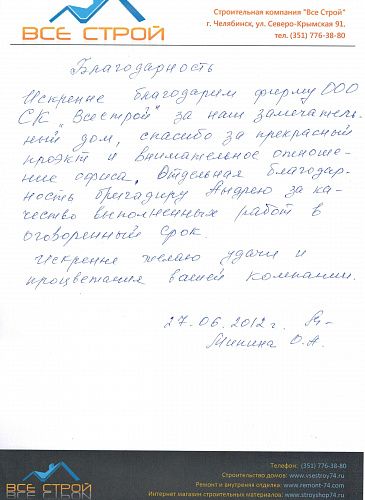 ВСЕ СТРОЙ
Строительная компания "Все Строй"
г. Челябинск, ул. Северо-Крымская 91,
тел. (351) 776-38-80
Благодарность
Искренне благодарим фирму ООО
СК „Все строй" за наш замечатель-
ный дом, спасибо за прекрасный
продукт и внимательное отноше-
ние офиса. Отдельная благодар-
ность бригадиру Андрею за ка-
чество выполненных работ в
оговоренный срок.
Искренне желаю удачи и
процветания вашей компании.
27.06.2012 г.
Минина О.А.
ВСЕ СТРОЙ
Телефон: (351) 776-38-80
Строительство домов: www.vsestroy74.ru
Ремонт и внутреняя отделка: www.remont-74.com
Интернет магазин строительных материалов: www.stroyshop74.ru